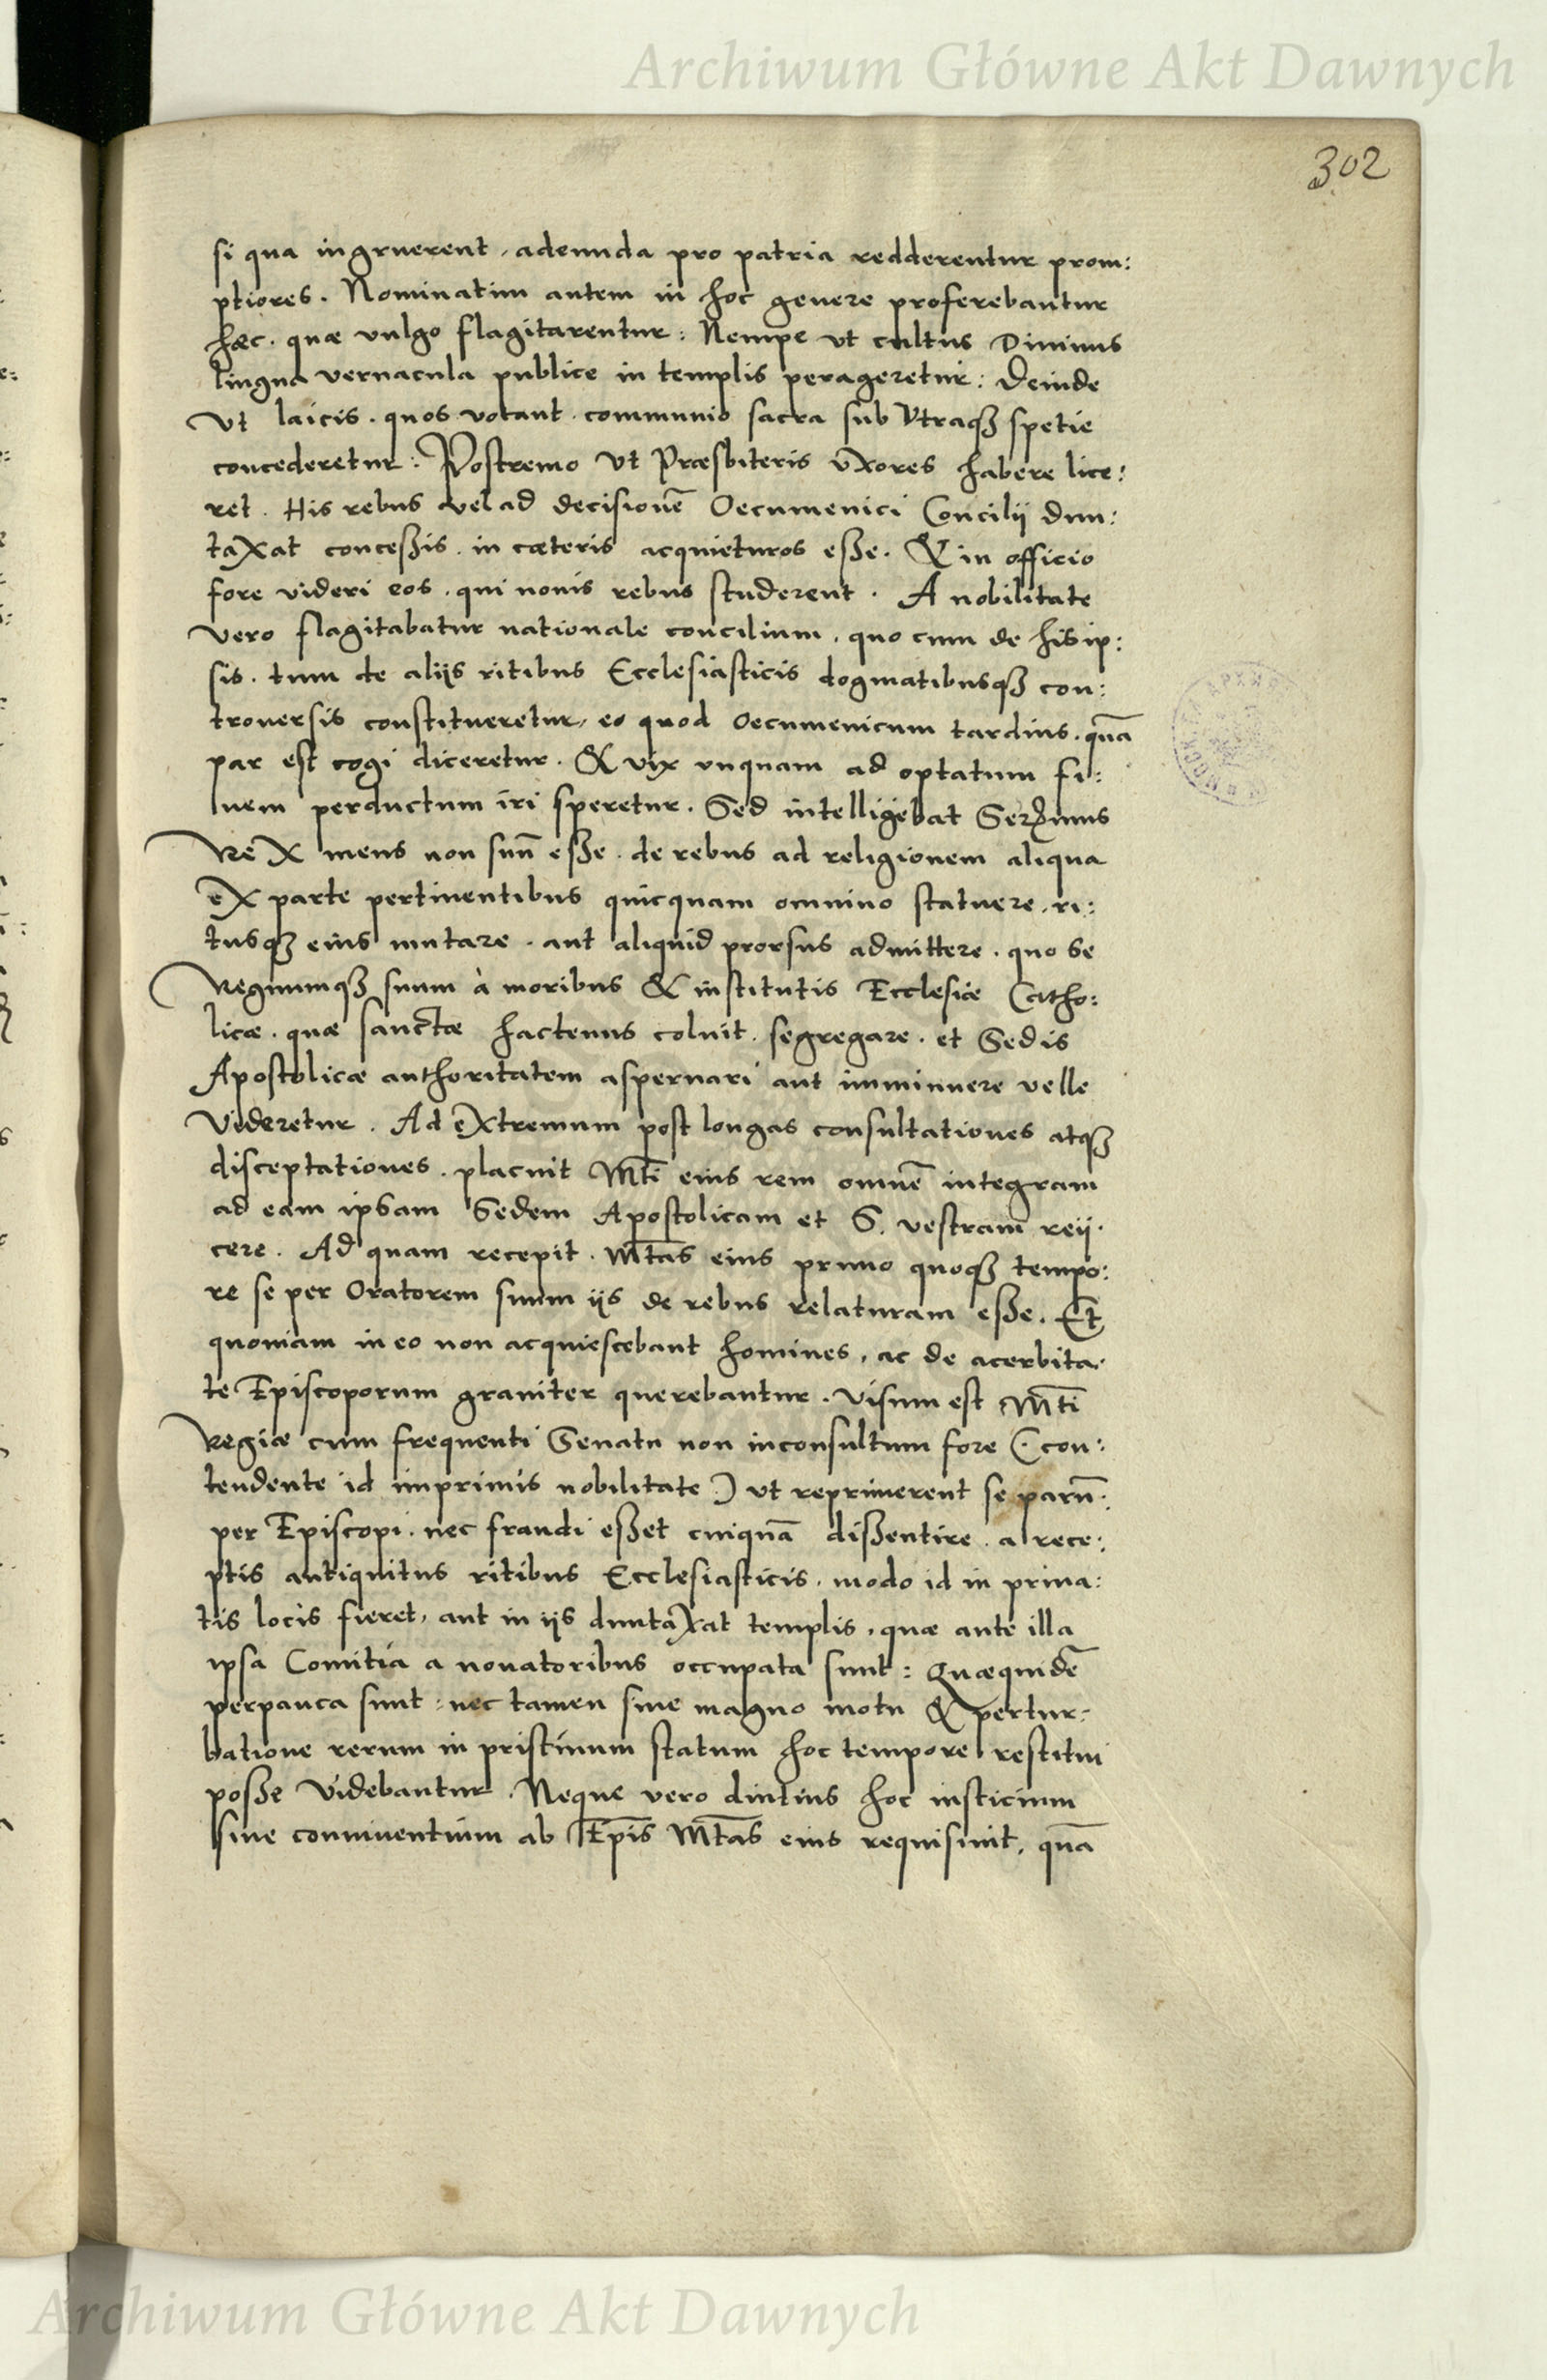 Archiwum Główne Akt Dawnych
302
si qua ingruerent, adeunda pro patria redderentur prom:
ptiores. Nominatim autem in hoc genere proferebantur
hæc. quæ vulgo flagitarentur: Nempe vt cultus Diuinus
lingua vernacula publice in templis perageretur: Deinde
Vt laicis. quos vocant. communio sacra sub Vtraqȝ spetie
concederetur: Postremo Vt Præsbiteris vxores habere lice:
ret. His rebus vel ad decisionē Oecumenici Concilij dun:
taxat conceßis. in cæteris acquieturos eße. & in officio
fore videri eos. qui nouis rebus studerent. A nobilitate
vero flagitabatur nationale concilium, quo cum de his ip:
sis. tum de alijs ritibus Ecclesiasticis dogmatibusqȝ con:
trouersis constitueretur, eo quod Oecumenicum tardius. quā
par est cogi diceretur. & vix vnquam ad optatum fi:
nem perductum iri speretur. Sed intelligebat Serᵐus
Rex meus non suū eße. de rebus ad religionem aliqua
ex parte pertinentibus quicquam omnino statuere, ri:
tusqȝ eius mutare. aut aliquid prorsus admittere. quo se
Regnumqȝ suum à moribus & institutis Ecclesiæ Catho:
licæ. quæ sanctæ hactenus coluit. segregare. et Sedis
Apostolicæ authoritatem aspernari aut imminuere velle
Videretur. Ad extremum post longas consultationes atqȝ
disceptationes. placuit Mti eius rem omnē integram
ad eam ipsam Sedem Apostolicam et S. vestram reij:
cere. Ad quam recepit. Mtas eius primo quoqȝ tempo:
re se per Oratorem suum ijs de rebus relaturam eße. Et
quoniam in eo non acquiescebant homines, ac de acerbita:
te Episcoporum grauiter querebantur. Visum est Mti
Regiæ cum frequenti Senatu non inconsultum fore (con:
tendente id imprimis nobilitate) vt reprimerent se parū:
per Episcopi. nec fraudi eßet cuiquā dißentire. a rece:
ptis antiquitus ritibus Ecclesiasticis. modo id in priua:
tis locis fieret, aut in ijs duntaxat templis, quæ ante illa
ipsa Comitia a nouatoribus occupata sunt: Quæquidē
perpauca sunt: nec tamen sine magno motu & pertur:
batione rerum in pristinum statum hoc tempore restitui
poße Videbantur. Neque vero diutius hoc iusticium
siue conniuentium ab Epis Mtas eius requisiuit, quā
Archiwum Główne Akt Dawnych